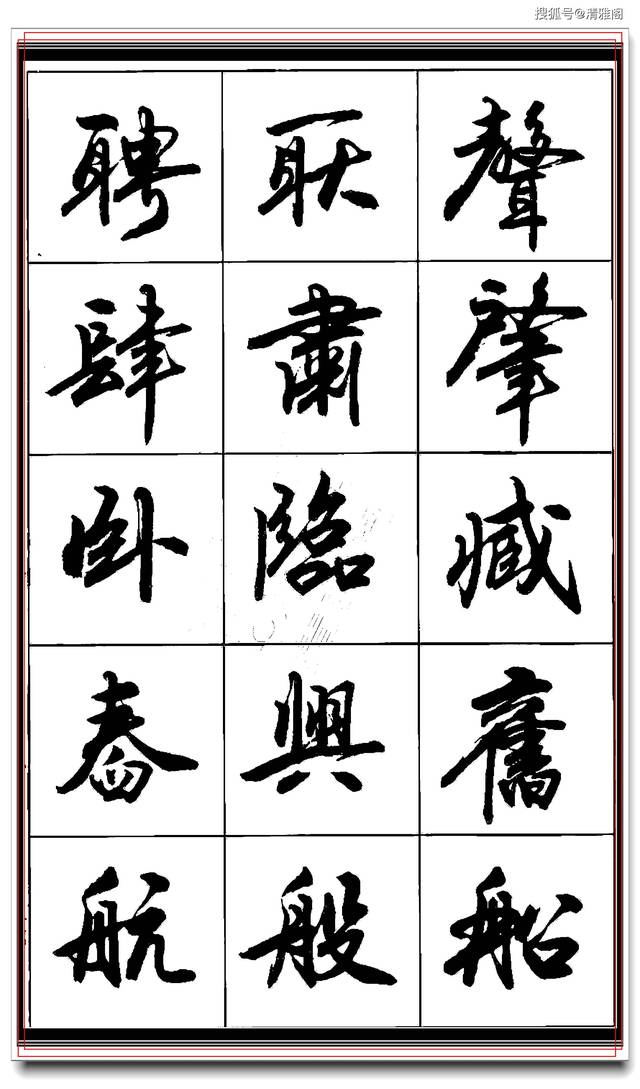 搜狐号@清雅阁
聘 耿 聲
肆 肅 肇
卧 臨 臧
舂 興 舊
航 般 船